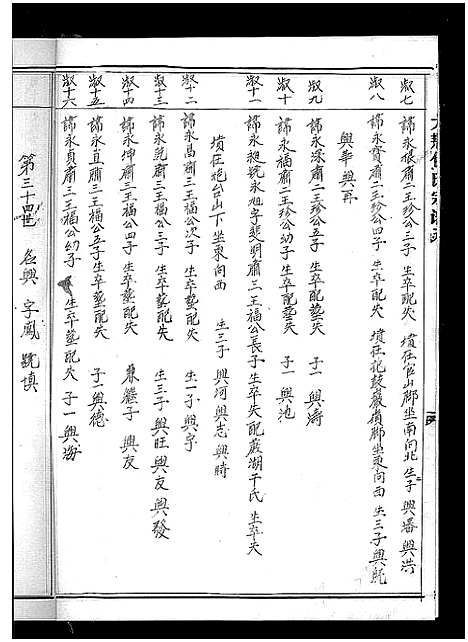 淑七 諱永振肅二王珍公三子 生卒配失 墳在官山腳坐南向北 生子 興播 興洪
淑八 諱永實肅二王珍公四子 生卒配失 墳在花鼓巖嶺腳坐東向西 生三子興旣
興華 興再
淑九 諱永深肅二王珍公五子 生卒配失 子一 興濤
淑十 諱永福肅二王珍公幼子 生卒塟配失 子一 興池
淑十一 諱永昶號永旭字斐明肅三王福公長子 生卒失 配嚴湖干氏 生卒失
墳在炮台山下坐東向西 生三子 興河 興志 興時
淑十二 諱永昌肅三王福公次子 生卒塟配失 生一子 興宇
淑十三 諱永乾肅三王福公三子 生卒塟配失 生三子 興旺 興友 興發
淑十四 諱永坤肅三王福公四子 生卒塟配失 承繼子 興友
淑十五 諱永直肅三王福公五子 生卒塟配失 子一 興德
淑十六 諱永貞肅三王福公幼子 生卒塟配失 子一 興海
第三十四世 名興 字鳳 號慎